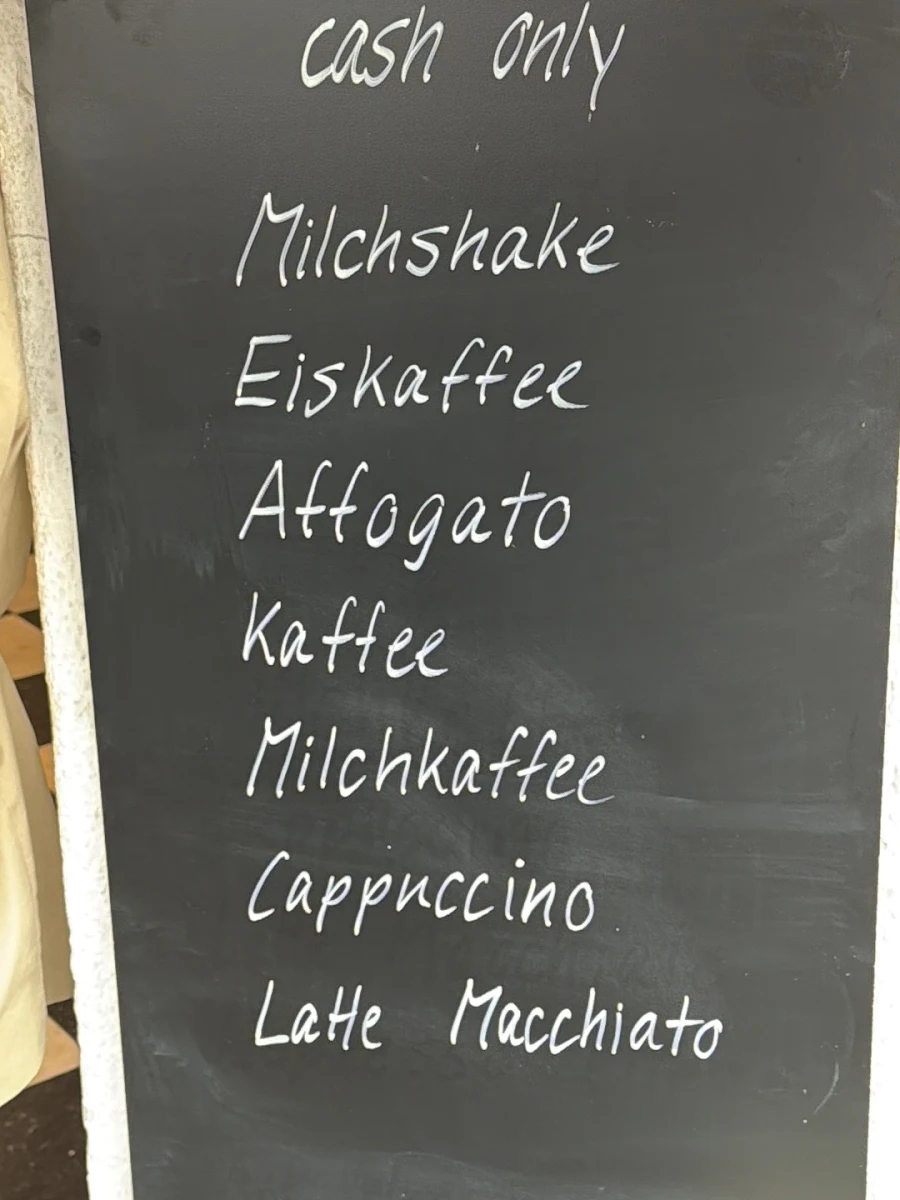 cash only
Milchshake
Eiskaffee
Affogato
Kaffee
Milchkaffee
Cappuccino
Latte Macchiato